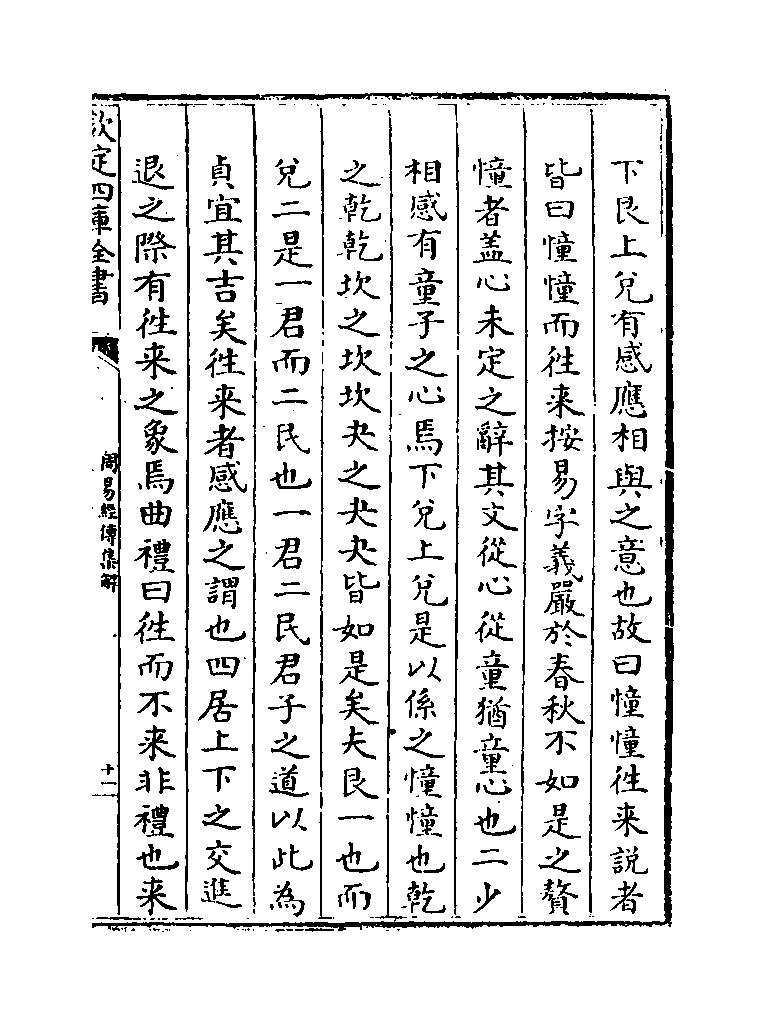 下艮上兌有感應相與之意也故曰憧憧徃来說者
皆曰憧憧而徃来按易字義嚴於春秋不如是之贅
憧者盖心未定之辭其文從心從童猶童心也二少
相感有童子之心焉下兌上兌是以係之憧憧也乾
之乾乾坎之坎坎夬之夬夬皆如是矣夫艮一也而
兌二是一君而二民也一君二民君子之道以此為
貞宜其吉矣徃来者感應之謂也四居上下之交進
退之際有徃来之象焉曲禮曰徃而不来非禮也来
欽定四庫全書
周易經傳集解
十二